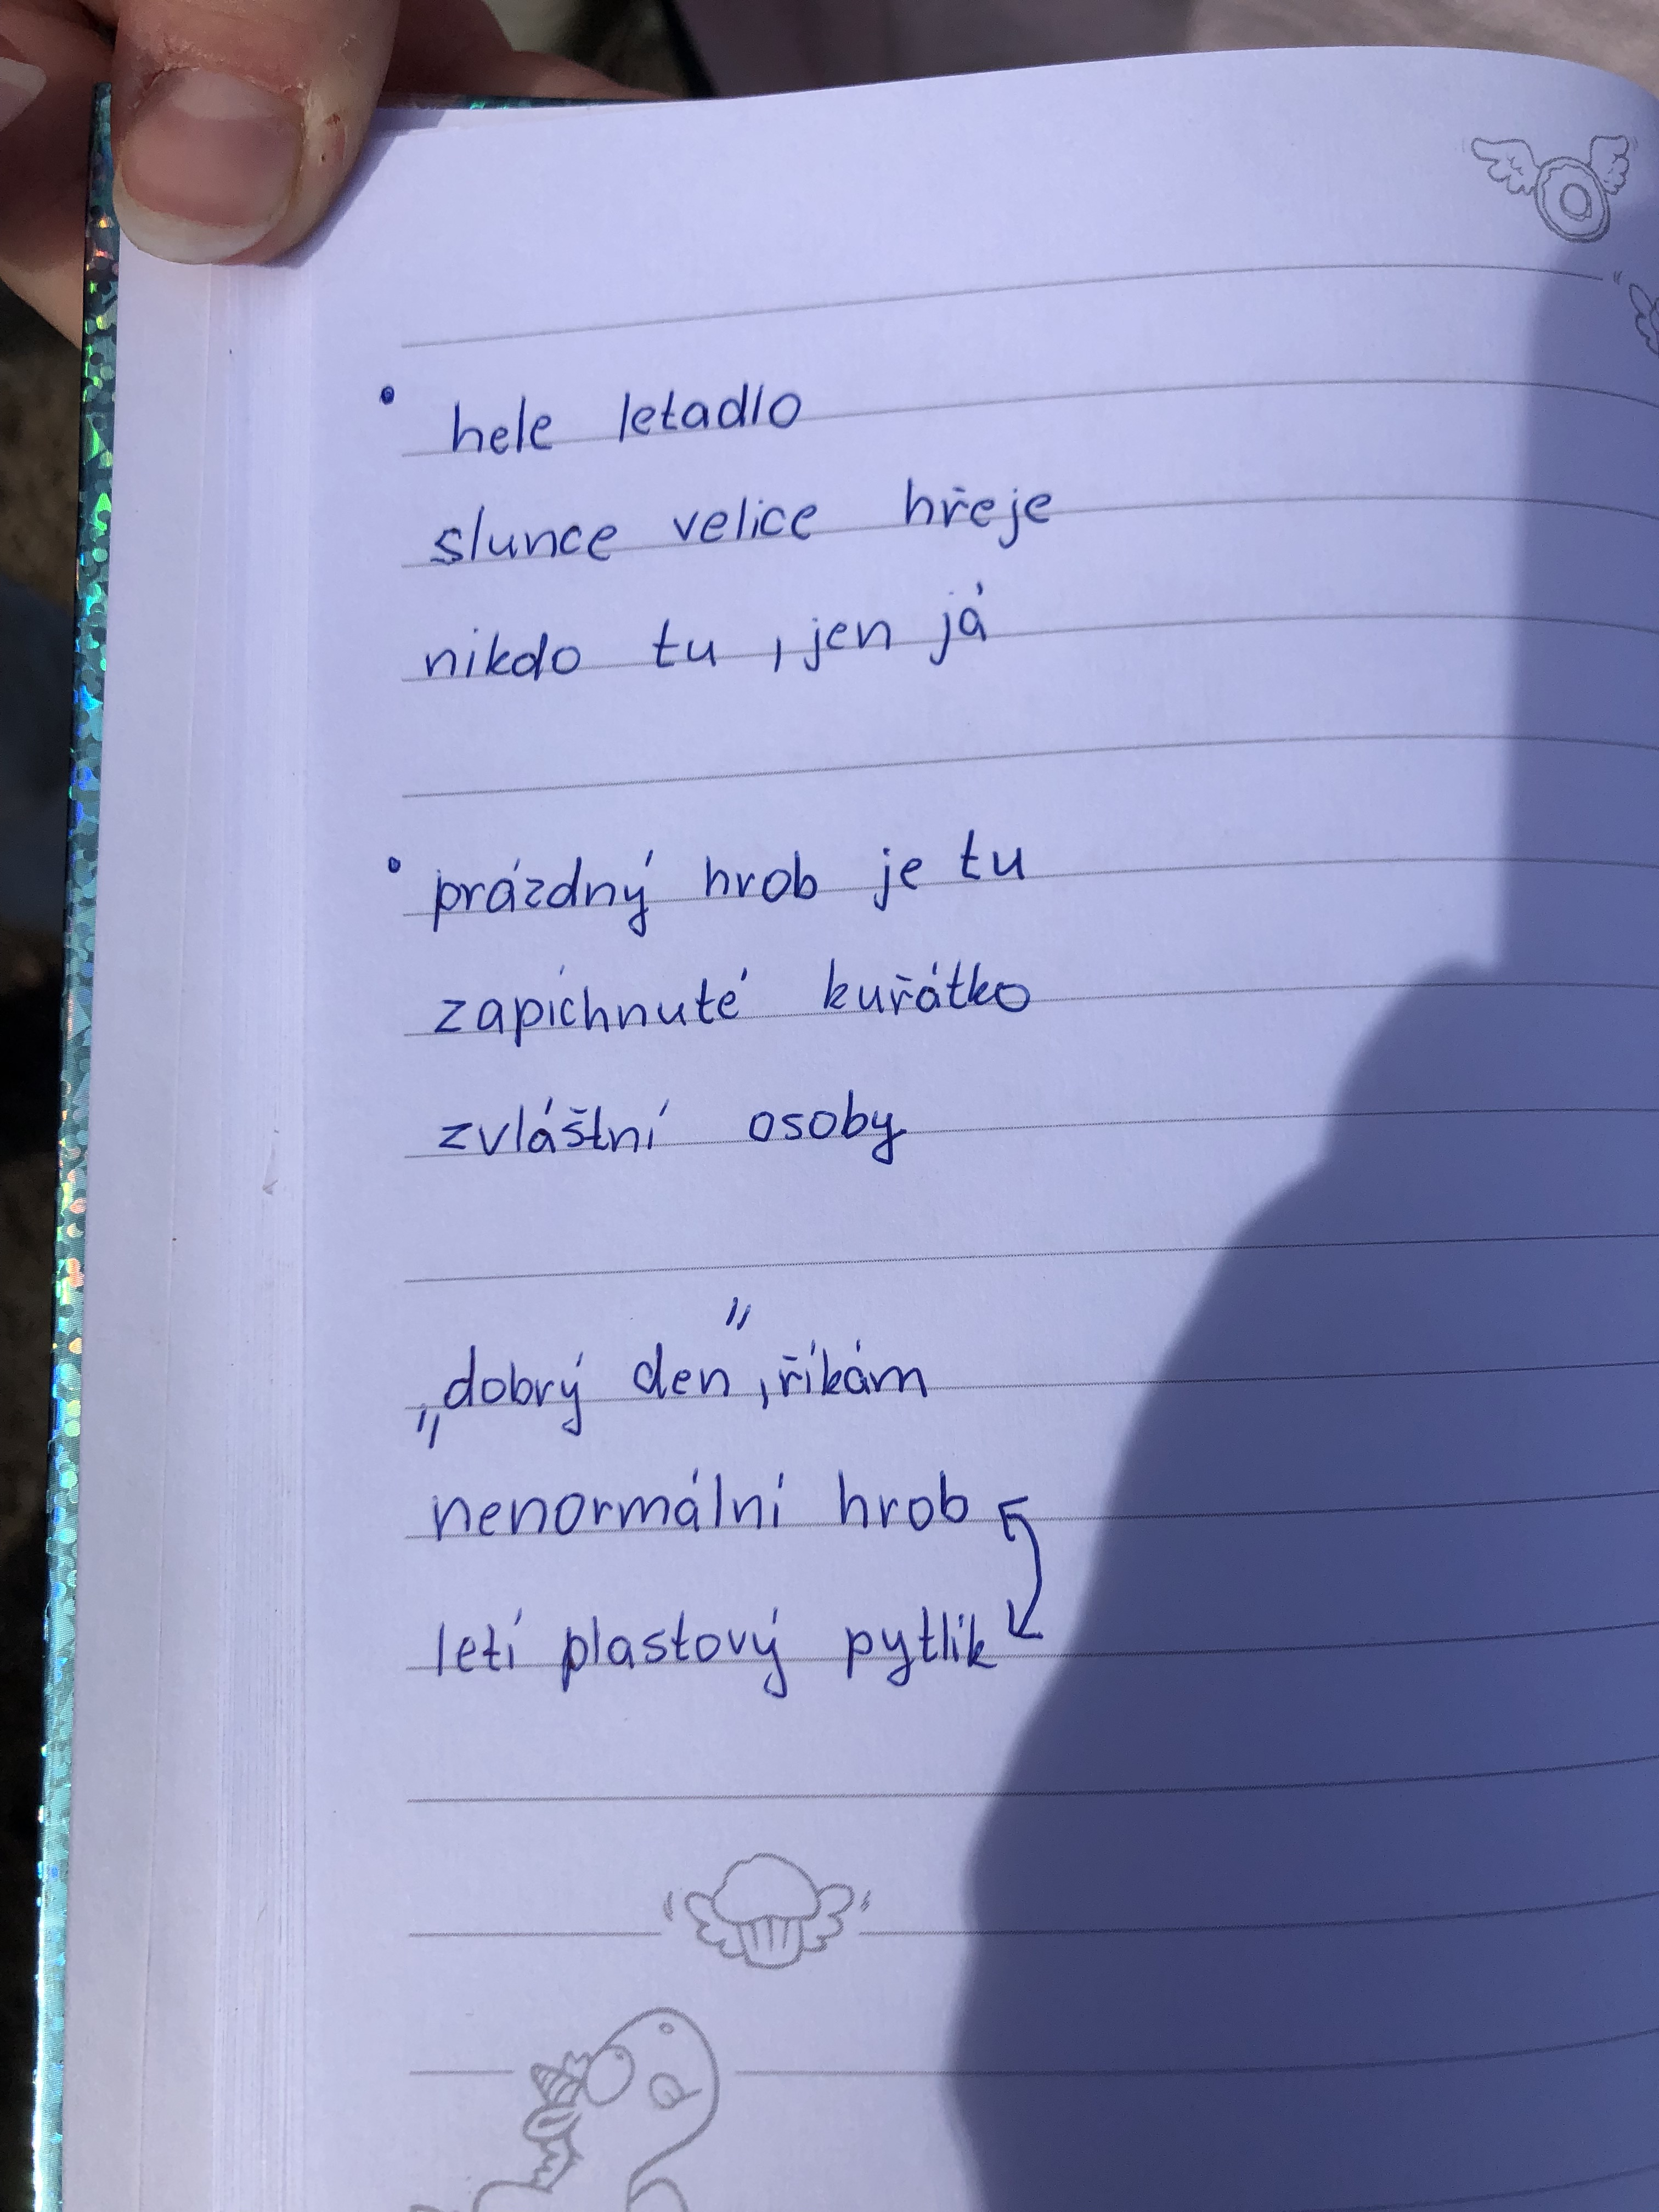 • hele letadlo
slunce velice hřeje
nikdo tu, jen já
• prázdný hrob je tu
zapíchnuté kuřátko
zvláštní osoby
„dobrý den", říkám
nenormální hrob
letí plastový pytlík